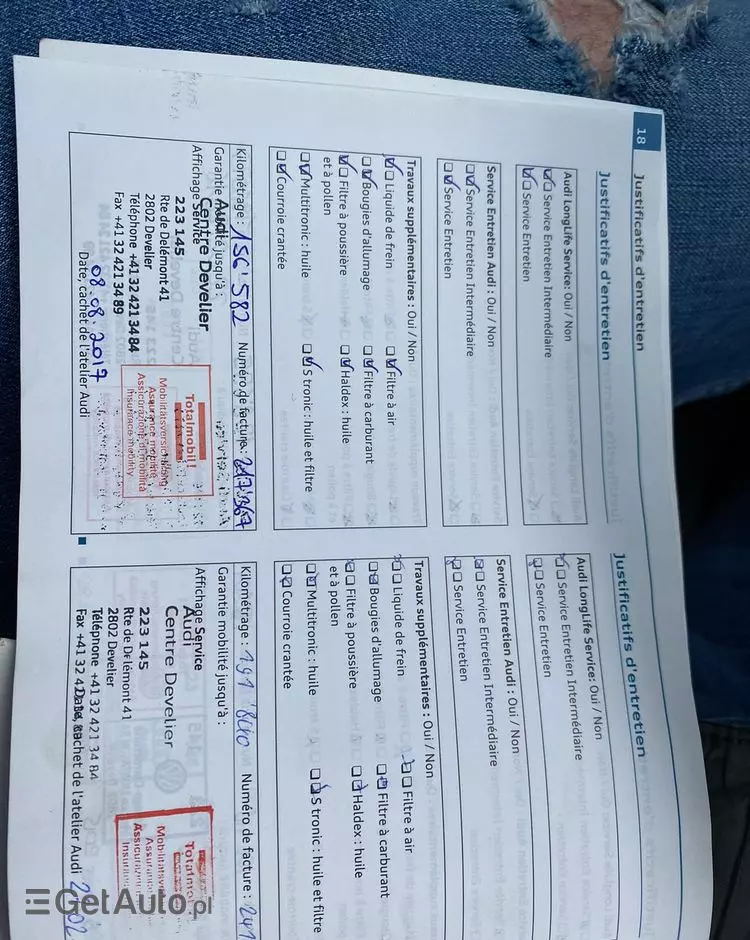 18
Justificatifs d'entretien
Justificatifs d'entretien
Audi LongLife Service: Oui / Non
Service Entretien Intermédiaire
Service Entretien
Service Entretien Audi : Oui / Non
Service Entretien Intermédiaire
Service Entretien
Travaux supplémentaires : Oui / Non
Liquide de frein
Filtre à air
Bougies d'allumage
Filtre à carburant
Filtre à poussière
et à pollen
Haldex : huile
Multitronic : huile
S tronic : huile et filtre
Courroie crantée
Kilométrage : 156'582 Numéro de facture :
Garantie mobilité jusqu'à :
Affichage Service
Audi
Centre Develier
223 145
Rte de Delémont 41
2802 Develier
Téléphone +41 32 421 34 84
Fax +41 32 421 34 89
Totalmobil!
Mobilitätsversicherung
Assurance mobilité
Assicurazione di mobilità
Insurance mobility
08.08.2017
Date, cachet de l'atelier Audi
Justificatifs d'entretien
Audi LongLife Service: Oui / Non
Service Entretien Intermédiaire
Service Entretien
Service Entretien Audi : Oui / Non
Service Entretien Intermédiaire
Service Entretien
Travaux supplémentaires : Oui / Non
Liquide de frein
Filtre à air
Bougies d'allumage
Filtre à carburant
Filtre à poussière
et à pollen
Haldex : huile
Multitronic : huile
S tronic : huile et filtre
Courroie crantée
Kilométrage : Numéro de facture :
Garantie mobilité jusqu'à :
Affichage Service
Audi
Centre Develier
223 145
Rte de Delémont 41
2802 Develier
Téléphone +41 32 421 34 84
Fax +41 32 42
cachet de l'atelier Audi
GetAuto.pl